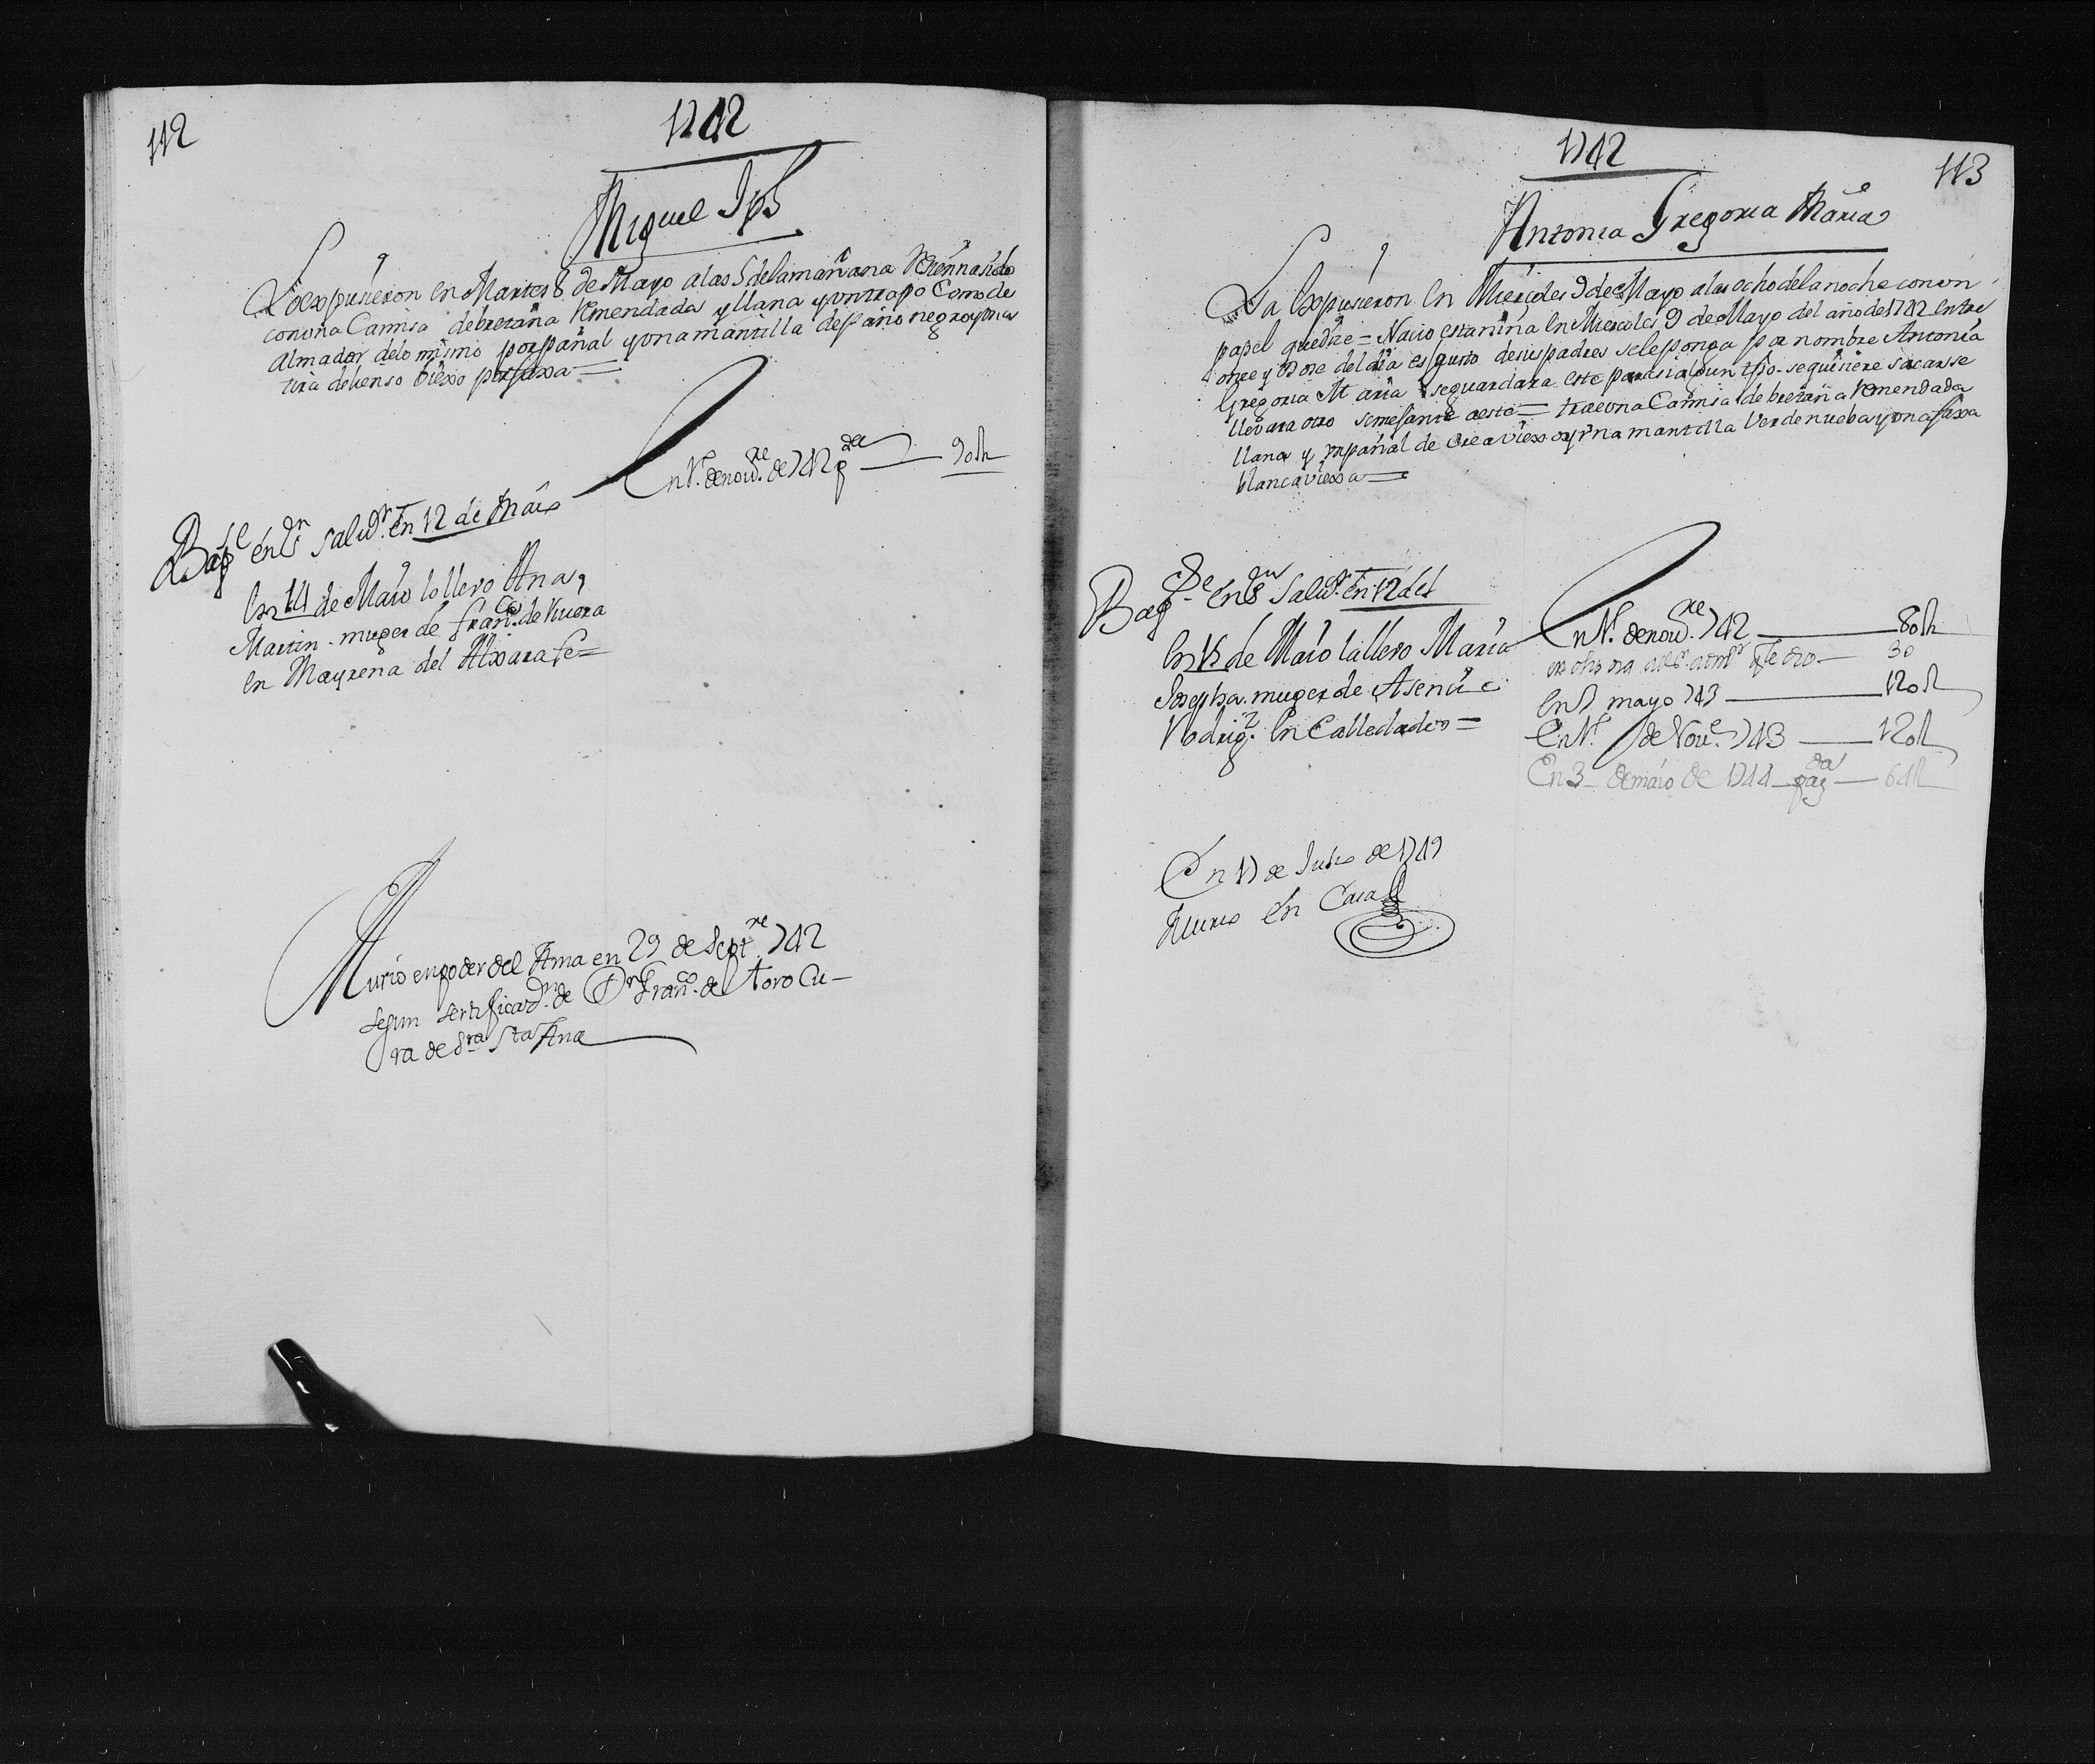 112
1742
Miguel Jph
Lo expusieron en Martes 8 de Mayo a las 5 de la mañana Reciennasido
con ona Camisa de bretaña Remendada y llana y on trapo Como de
almador de lo mismo por pañal y ona mantilla de paño negro y ona
tira de lienso biexo por faxa =
En 1º de nov.re de 742 p da 90 R
Bapse en Sn Salv.or en 12 de Maio
En 14 de Maio lo llevo Ana
Martin muger de Fran.co de Rueda
en Mayrena del Alxarafe =
Murio en poder del Ama en 29 de Sept.re 742
segun sertificaz.n de Dn Fran.co del Toro Cu-
ra de Sra Sta Ana
1742
113
Antonia Gregoria Maria
La Expusieron En Miercoles 9 de Mayo a las ocho de la noche con on
papel que dize = Nacio esta niña En Miercoles 9 de Mayo del año de 1742 entre
onze y Doze del dia es gusto de sus padres se le ponga por nombre Antonia
Gregoria Maria se guardara este para si algun tpo. se quisiere sacarse
llevara otro semejante a este = trae ona Camisa de bretaña Remendada
llana y on pañal de crea viexo y ona mantilla Verde nueba y ona faxa
blanca viexa =
Bapse en Sn Salv.or en 12 del
En 15 de Maio la llevo Maria
Josepha muger de Asencio
Rodrig.z En Calle
En 1º de nov.re 742 80 R
30
En mayo 743 120 R
En 1º de Nov.e 743 120 R
En 3 de maio de 1744 pag da 64 R
En 17 de Julio de 1749
Murio en Casa